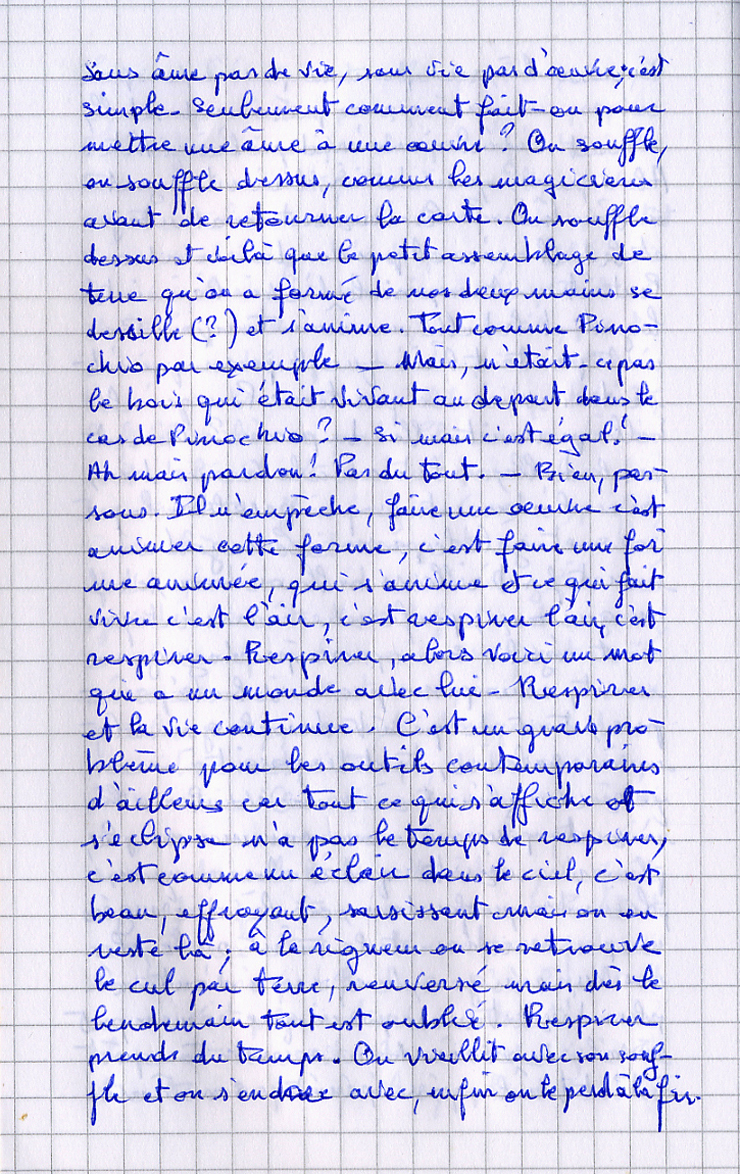 Sans âme pas de vie, sans vie pas d'œuvre, c'est
simple. Seulement comment fait-on pour
mettre une âme à une œuvre ? On souffle,
on souffle dessus, comme les magiciens
avant de retourner la carte. On souffle
dessus et voilà que le petit assemblage de
terre qu'on a formé de nos deux mains se
dessille (?) et s'anime. Tout comme Pino-
chio par exemple — Mais, n'était-ce pas
le bois qui était vivant au depart dans le
cas de Pinochio ? — Si mais c'est égal ! —
Ah mais pardon ! Pas du tout. — Bien, pas-
sons. Il n'empèche, faire une œuvre c'est
animer cette forme, c'est faire une for
me animée, qui s'anime et ce qui fait
vivre c'est l'air, c'est respirer l'air, c'est
respirer. Respirer, alors voici un mot
qui a un monde avec lui - Respirer
et la vie continue. C'est un grave pro-
blème pour les outils contemporains
d'ailleurs car tout ce qui s'affiche et
s'eclipse n'a pas le temps de respirer,
c'est comme un éclair dans le ciel, c'est
beau, effrayant, saisissant mais on en
reste là ; à la rigueur on se retrouve
le cul par terre, renversé mais dès le
lendemain tout est oublié. Respirer
prends du temps. On vieillit avec son souf-
fle et on s'endort avec, enfin on le perd à la fin.